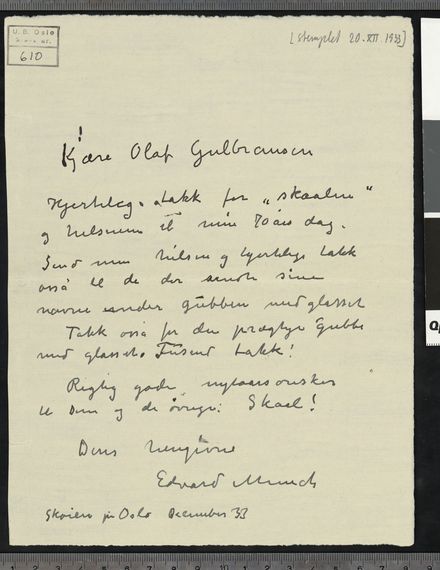 U. B. Oslo
610
[stemplet 20. XII. 1933]
Kjære Olaf Gulbransson
Hjertelig takk for „skaalen“
og hilsenen til min 70 års dag.
Send min hilsen og hjertelige takk
osså til de der sendte sine
navne under Gubben med glasset
Takk osså for den prægtige Gubbe
med glasset. Tusend takk!
Rigtig gode nytaarsønsker
til Dem og de øvrige: Skaal!
Deres hengivne
Edvard Munch
Skøien pr Oslo December 33